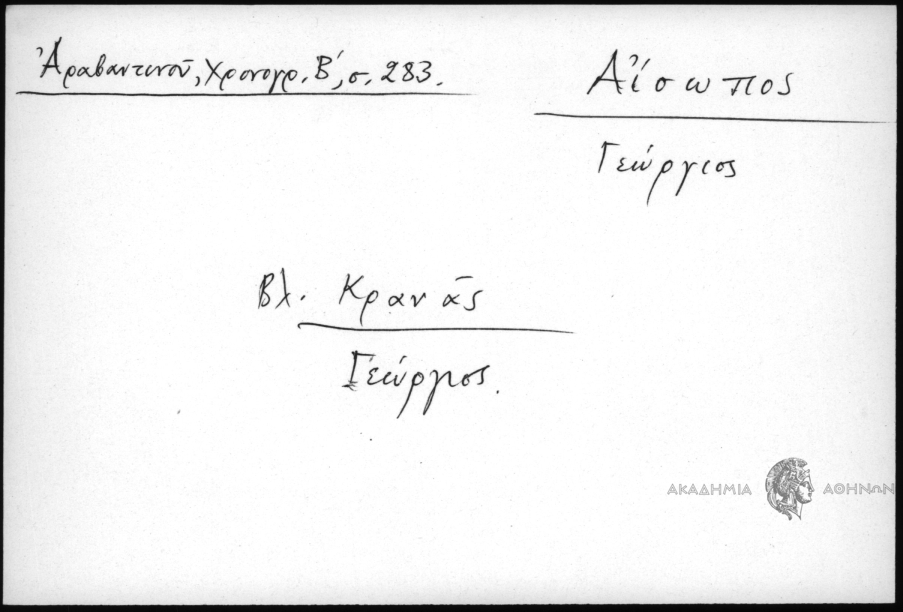 Ἀραβαντινοῦ, Χρονογρ. Β΄, σ. 283.
Αἴσωπος
Γεώργιος
Βλ. Κρανᾶς
Γεώργιος.
ΑΚΑΔΗΜΙΑ ΑΘΗΝΩΝ